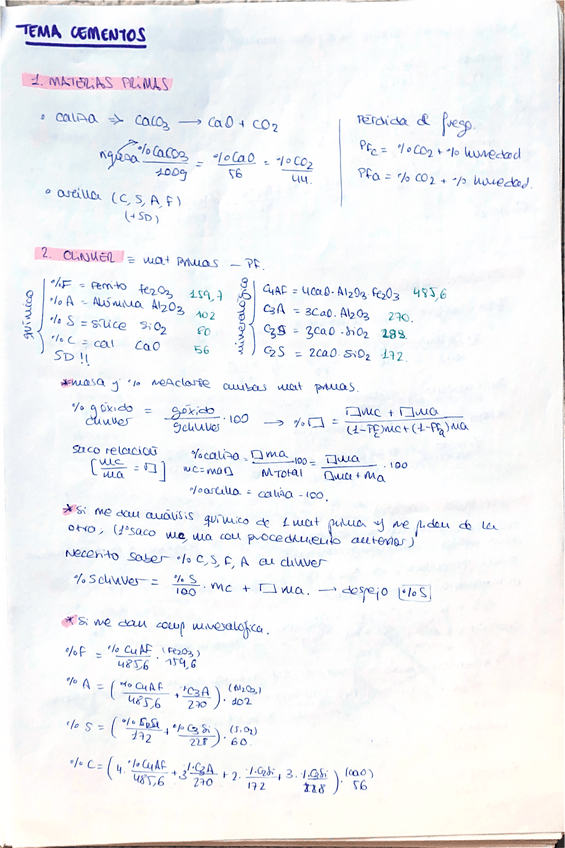 TEMA CEMENTOS
1. MATERIAS PRIMAS
• caliza => CaCO3 → CaO + CO2
%CaCO3 / 100g = %CaO / 56 = %CO2 / 44.
• arcilla (C, S, A, F)
(+SD)
Pérdida al fuego.
PFc = %CO2 + % humedad
PFa = %CO2 + % humedad.
2. CLINKER ≡ mat primas - PF.
químico
%F = Ferrito Fe2O3 159,7
%A = Alúmina Al2O3 102
%S = sílice SiO2 60
%C = cal CaO 56
SD !!
mineralógico
C4AF = 4CaO·Al2O3 Fe2O3 485,6
C3A = 3CaO·Al2O3 270.
C3S = 3CaO·SiO2 288.
C2S = 2CaO·SiO2 172.
*masa y % mezclarte ambas mat primas.
% góxido clinker = góxido / gclinker · 100 → %□ = □mc + □ma / (1-PFc)mc+(1-PFa)ma
saco relación [mc/ma = □]
mc=ma□
%caliza = □ma / M Total · 100 = □ma / □ma + ma · 100
%arcilla = caliza - 100.
*Si me dan análisis químico de 1 mat prima y me piden de la
otra, (1º saco mc, ma con procedimiento anterior)
Necesito saber % C, S, F, A del clinker
% S clinker = %S / 100 · mc + □ ma. → despejo [%S]
*Si me dan comp mineralógica.
%F = %C4AF / 485,6 · (Fe2O3) 159,6
%A = (%C4AF / 485,6 + %C3A / 270) · (Al2O3) 102
%S = ( / 172 + %C3Si / 228) · (SiO2) 60.
%C = (4· %C4AF / 485,6 + 3 %C3A / 270 + 2· %C2Si / 172 + 3· %C3Si / 288) · (CaO) 56